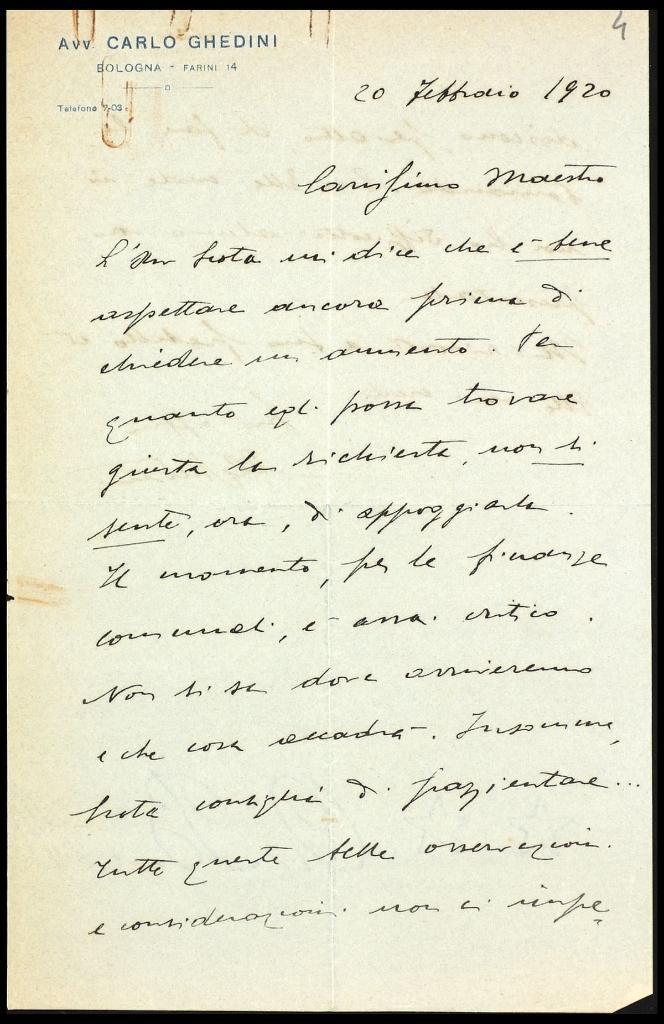 4
Avv. CARLO GHEDINI
BOLOGNA - FARINI 14
Telefono 7-03
20 Febbraio 1920
Carissimo Maestro
L'Avv mi dice che è bene
aspettare ancora prima di
chiedere un aumento. Per
quanto egli possa trovare
giusta la richiesta, non si
sente, ora, di appoggiarla.
Il momento, per le finanze
comunali, è assai critico.
Non si sa dove arriveremo
e che cosa accadrà. Insomma,
consiglia di pazientare...
Tutte queste belle osservazioni
e considerazioni non ci impe=